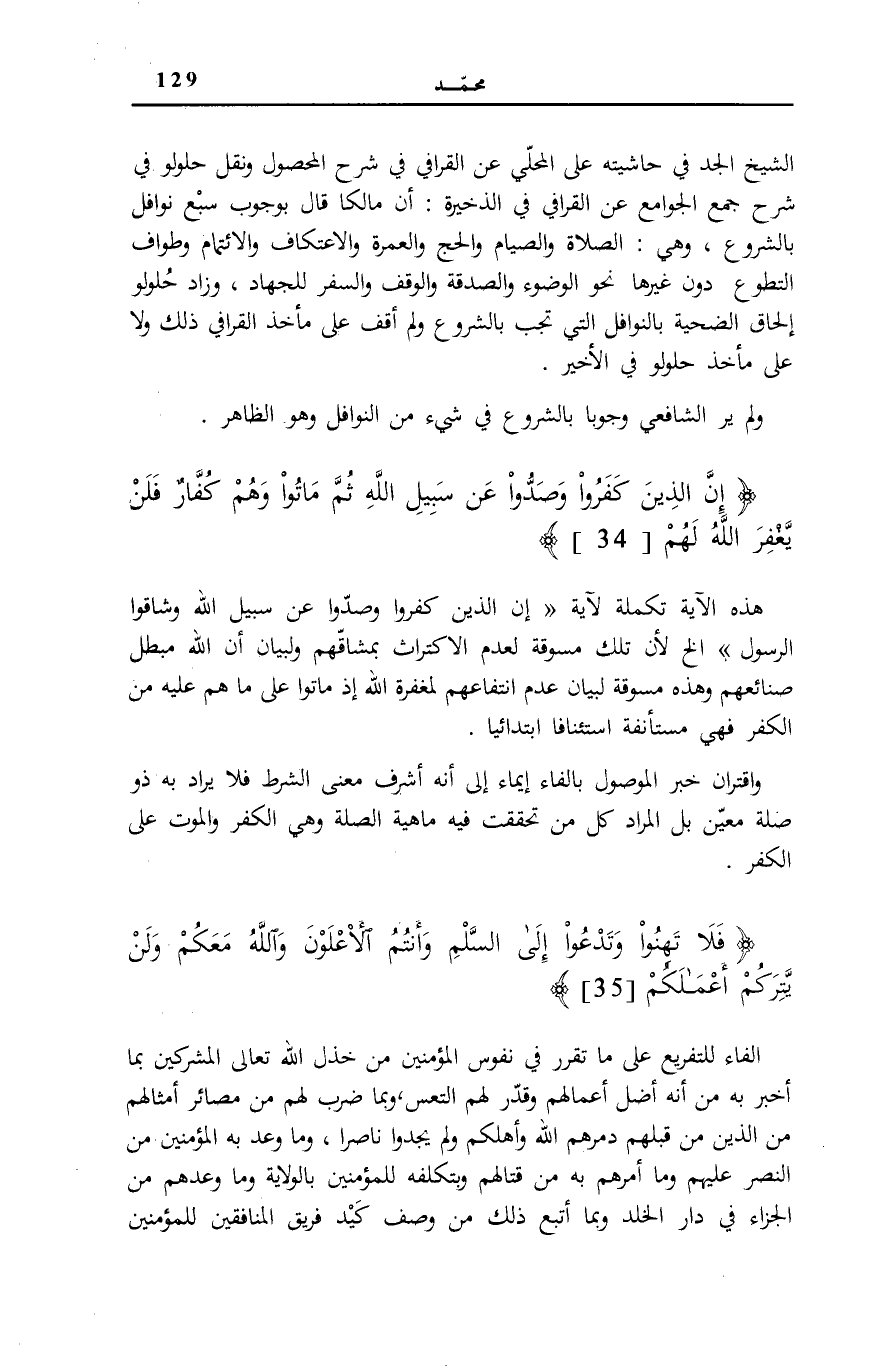 129
محمّد
الشيخ الجد في حاشيته على المحلّي عن القرافي في شرح المحصول ونقل حلولو في
شرح جمع الجوامع عن القرافي في الذخيرة : أن مالكا قال بوجوب سبْع نوافل
بالشروع ، وهي : الصلاة والصيام والحج والعمرة والاعتكاف والائتمام وطواف
التطوع دون غيرها نحو الوضوء والصدقة والوقف والسفر للجهاد ، وزاد حُلولو
إلحاق الضحية بالنوافل التي تجب بالشروع ولم أقف على مأخذ القرافي ذلك ولا
على مأخذ حلولو في الأخير .
ولم ير الشافعي وجوبا بالشروع في شيء من النوافل وهو الظاهر .
﴿ إِنَّ الذِينَ كَفَرُواْ وَصَدُّواْ عَن سَبِيلِ اللَّهِ ثُمَّ مَاتُواْ وَهُمْ كُفَّارٌ فَلَنْ
يَّغْفِرَ اللَّهُ لَهُمْ [ 34 ] ﴾
هذه الآية تكملة لآية « إن الذين كفروا وصدّوا عن سبيل الله وشاقوا
الرسول » الخ لأن تلك مسوقة لعدم الاكتراث بمشاقّهم ولبيان أن الله مبطل
صنائعهم وهذه مسوقة لبيان عدم انتفاعهم لمغفرة الله إذ ماتوا على ما هم عليه من
الكفر فهي مستأنفة استئنافا ابتدائيا .
واقتران خبر الموصول بالفاء إيماء إلى أنه أشرف معنى الشرط فلا يراد به ذو
صلة معيّن بل المراد كل من تحققت فيه ماهية الصلة وهي الكفر والموت على
الكفر .
﴿ فَلَا تَهِنُواْ وَتَدْعُواْ إِلَىٰ السَّلْمِ وَأَنتُمُ ٱلْأَعْلَوْنَ وَٱللَّهُ مَعَكُمْ وَلَنْ
يَّتِرَكُمْ أَعْمَـٰلَكُمْ [35] ﴾
الفاء للتفريع على ما تقرر في نفوس المؤمنين من خذل الله تعالى المشركين بما
أخبر به من أنه أضل أعمالهم وقدّر لهم التعس،وبما ضرب لهم من مصائر أمثالهم
من الذين من قبلهم دمرهم الله وأهلكم ولم يجدوا ناصرا ، وما وعد به المؤمنين من
النصر عليهم وما أمرهم به من قتالهم وبتكلفه للمؤمنين بالولاية وما وعدهم من
الجزاء في دار الخلد وبما أتبع ذلك من وصف كَيْد فريق المنافقين للمؤمنين